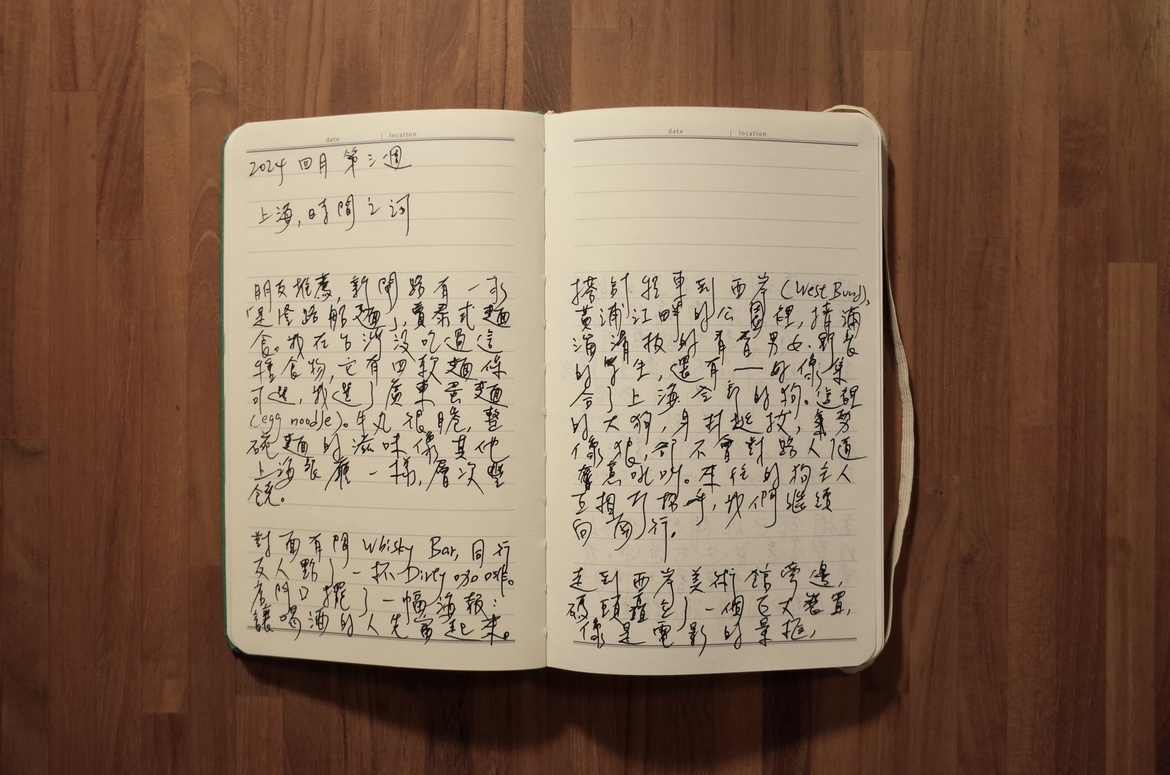 date | location
2024 四月 第三週
上海,時間之河
朋友推薦,新閘路有一家
「是隆路船麵」,賣泰式麵
食。我在台灣沒吃過這
種食物,它有四款麵條
可選,我選了廣東蛋麵
(egg noodle)。牛丸很脆,整
碗麵的滋味像其他
上海餐廳一樣,層次豐
饒。
對面有間 Whisky Bar,同行
友人點了一杯Dirty咖啡。
店門口擺了一幅海報:
讓喝酒的人先富起來。
date | location
搭計程車到西岸(West Bund),
黃浦江畔的公園裡,擠滿
滑板的青春男女、野餐
的學生,還有——好像集
合了上海全部的狗。這裡
的大狗,身材挺拔,氣勢
像狼,卻不會對路人隨
意吼叫。來往的狗主人
互相打招呼,我們繼續
向南行。
走到西岸美術館旁邊,
碼頭矗立了一個巨大裝置,
像是電影的景框,